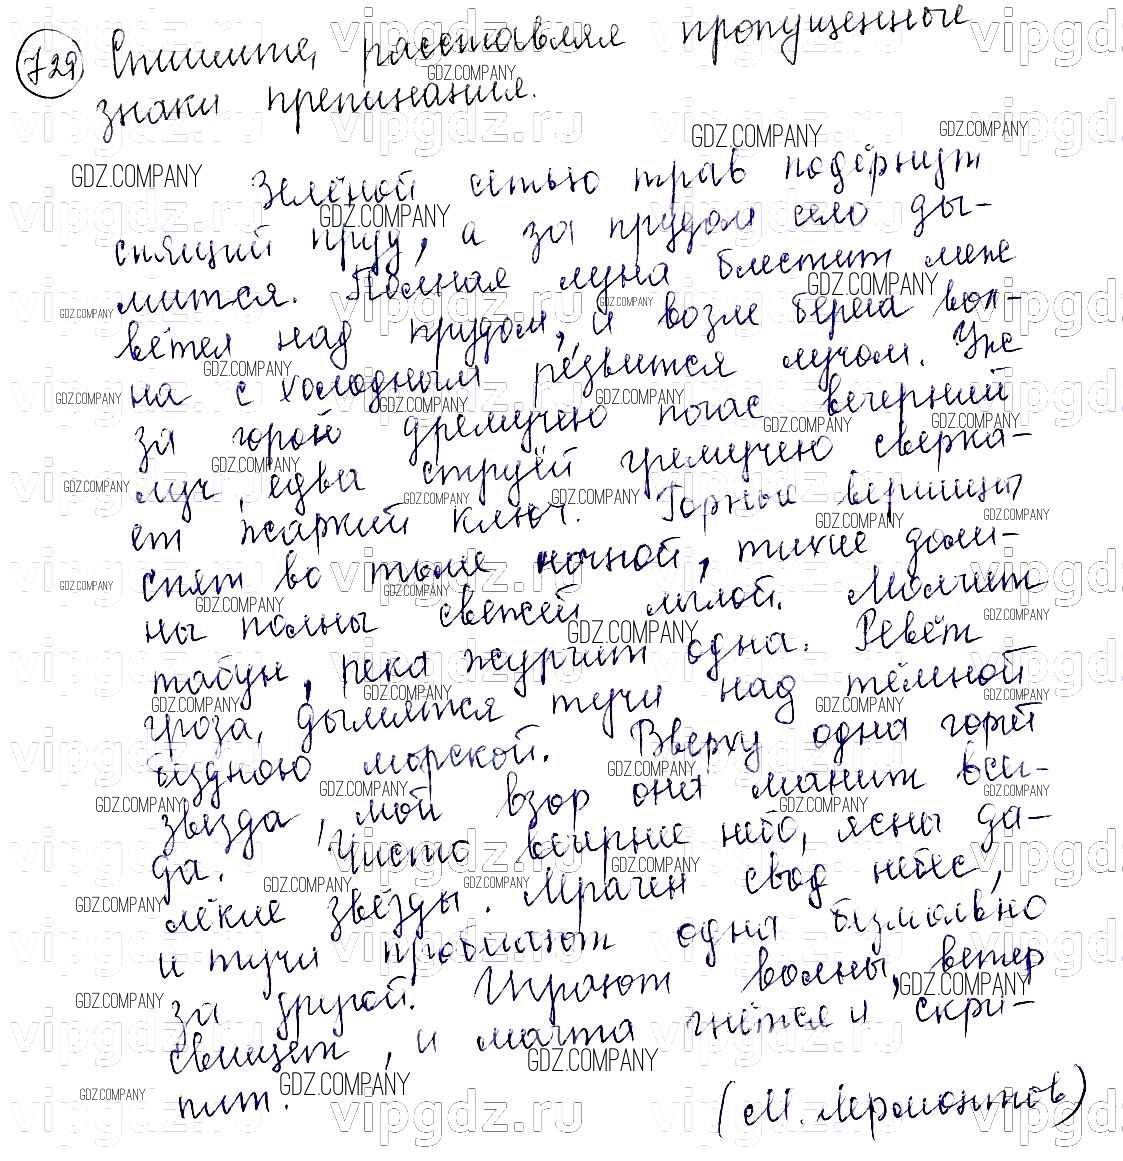 729 Спишите, расставляя пропущенные
знаки препинания.
Зелёной сетью трав подёрнут
спящий пруд, а за прудом село ды-
мится. Полная луна блестит меж
ветел над прудом, и возле берега вол-
на с холодным резвится лучом. Уже
за горой дремучею погас вечерний
луч, едва струёй гремучею сверка-
ет жаркий ключ. Горные вершины
спят во тьме ночной, тихие доли-
ны полны свежей мглой. Молчит
табун, река журчит одна. Ревёт
гроза, дымятся тучи над тёмной
бездною морской. Вверху одна горит
звезда, мой взор она манит все-
да. Чисто вечернее небо, ясны да-
лёкие звёзды. Мрачен свод небес,
и тучи пробегают одна безмолвно
за другой. Играют волны, ветер
свищет, и мачта гнётся и скри-
пит.
(М. Лермонтов)